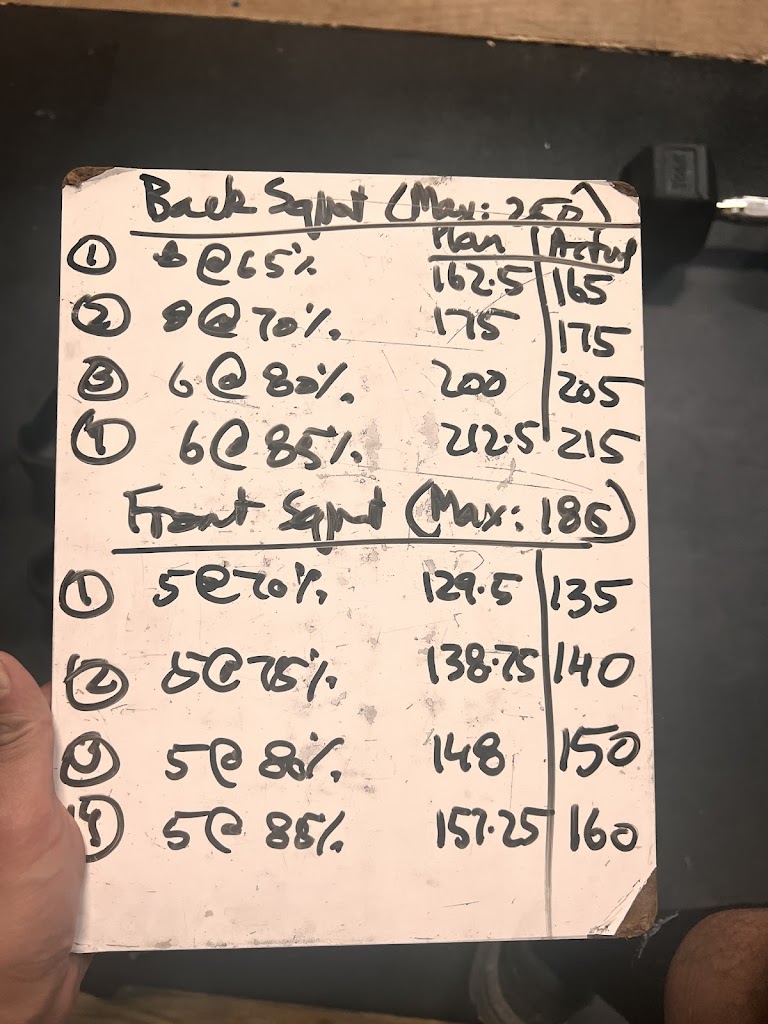 Back Squat (Max: 250)
Plan Actual
① 8 @ 65% 162.5 165
② 8 @ 70% 175 175
③ 6 @ 80% 200 205
④ 6 @ 85% 212.5 215
Front Squat (Max: 186)
① 5 @ 70% 129.5 135
② 5 @ 75% 138.75 140
③ 5 @ 80% 148 150
④ 5 @ 85% 157.25 160